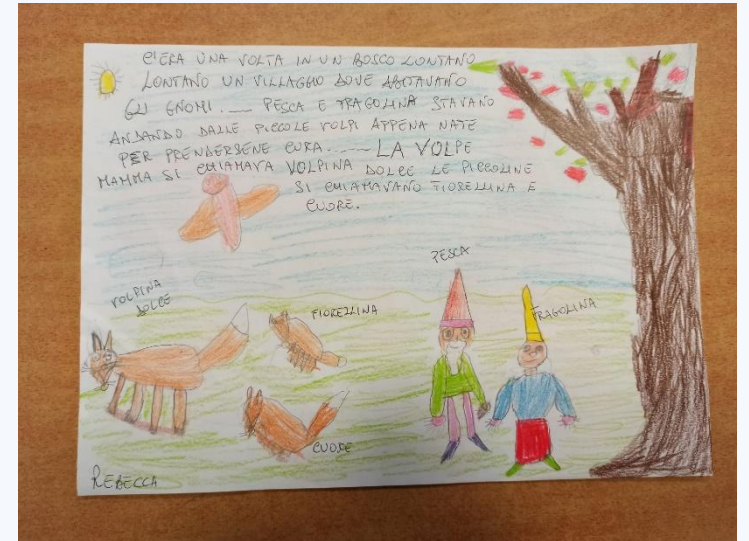 C'ERA UNA VOLTA IN UN BOSCO LONTANO
LONTANO UN VILLAGGIO DOVE ABITAVANO
GLI GNOMI.... PESCA E FRAGOLINA STAVANO
ANDANDO DALLE PICCOLE VOLPI APPENA NATE
PER PRENDERSENE CURA..... LA VOLPE
MAMMA SI CHIAMAVA VOLPINA DOLCE LE PICCOLINE
SI CHIAMAVANO FIORELLINA E
CUORE.
PESCA
VOLPINA
DOLCE
FIORELLINA
FRAGOLINA
CUORE
REBECCA